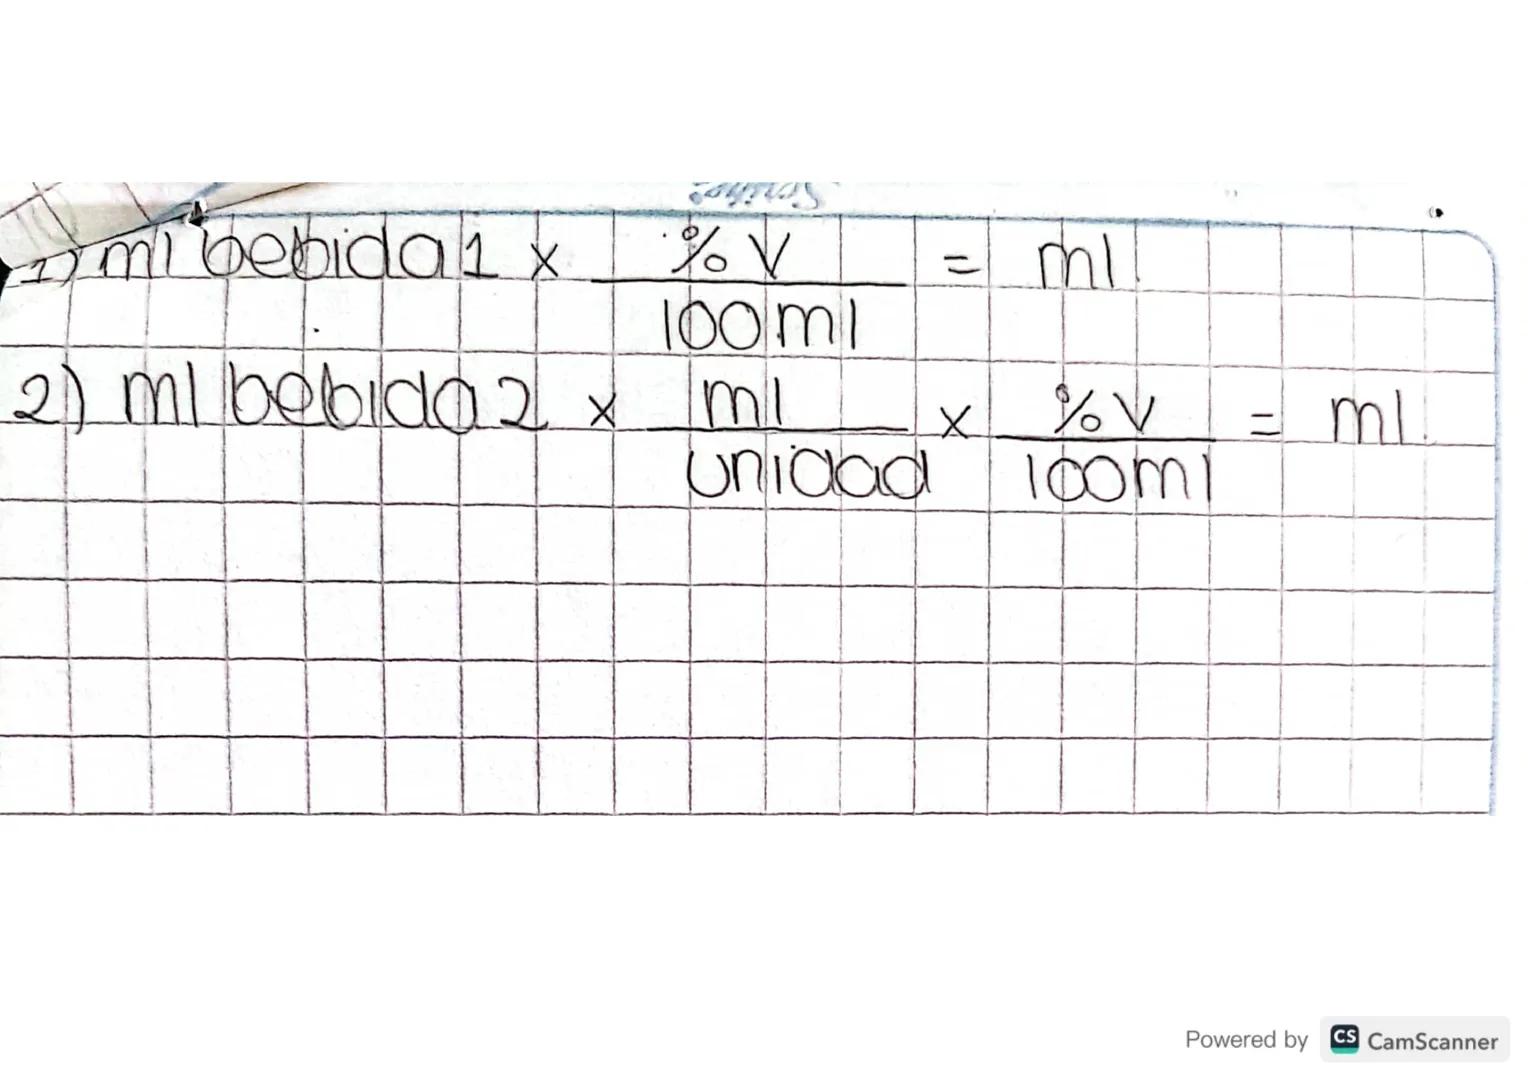 1) ml bebida 1 x % V / 100 ml = ml
2) ml bebida 2 x ml / unidad x % V / 100 ml = ml
Powered by CS CamScanner